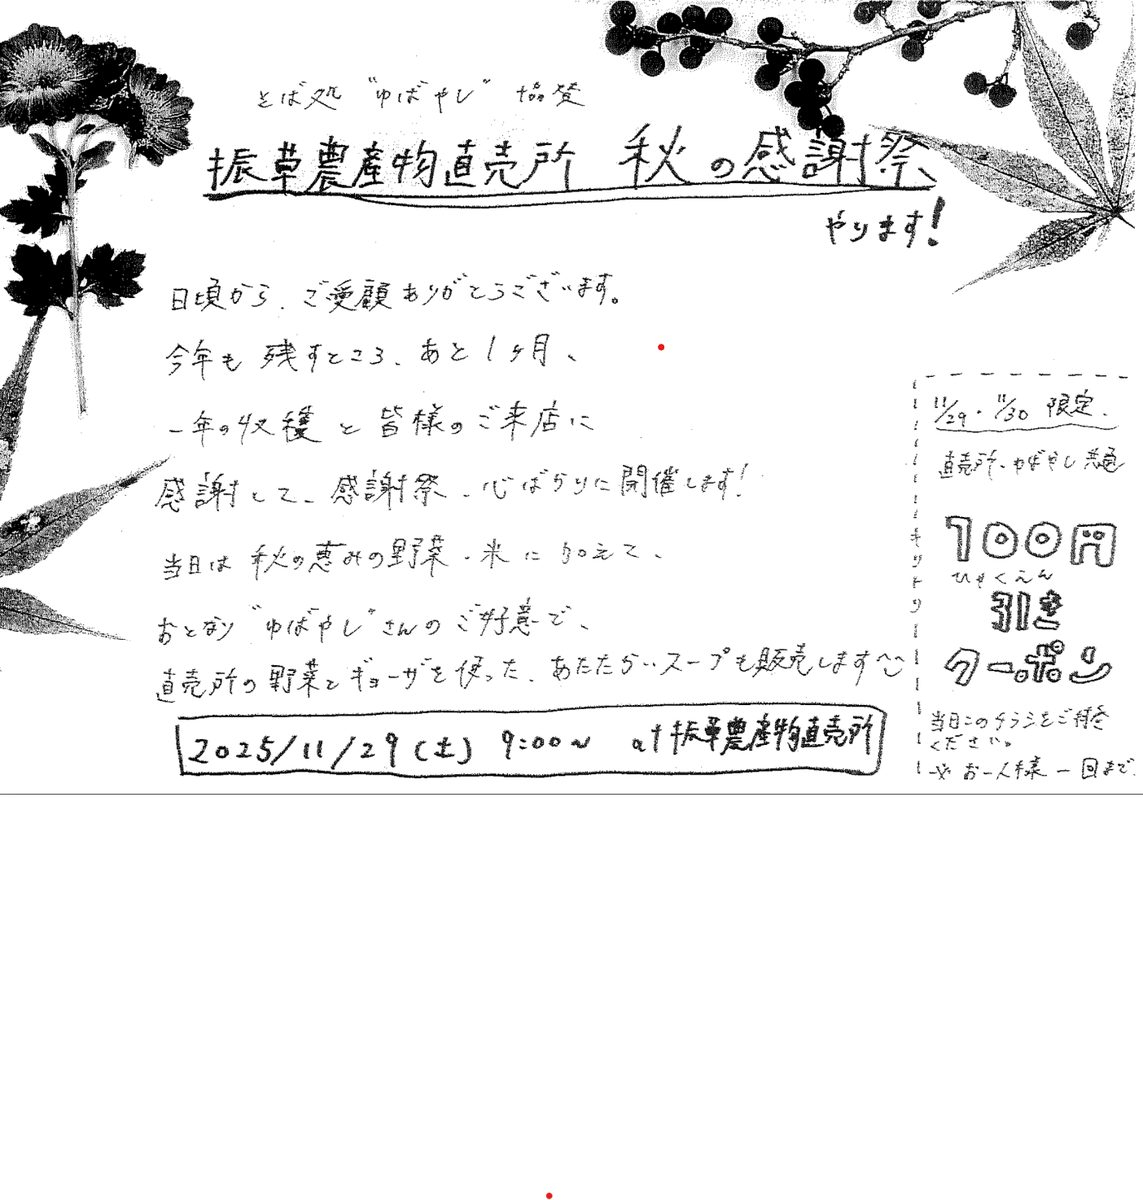 そば処 "ゆばやし" 協賛
振草農産物直売所 秋の感謝祭、
やります!
日頃から、ご愛顧ありがとうございます。
今年も 残すところ、あと1ヶ月、
一年の収穫 と 皆様のご来店に
感謝して、感謝祭、心ばかりに開催します!
当日は 秋の恵みの野菜・米 に加えて、
おとなり "ゆばやし"さんの ご好意で、
直売所の 野菜とギョーザを使った、あたたかいスープも販売します〜
2025/11/29(土) 9:00〜 at 振草農産物直売所
11/29・11/30 限定、
直売所・ゆばやし 共通
キリトリ
100円
ひゃくえん
引き
クーポン
当日このチラシをご持参
ください。
※ お一人様 一回まで。